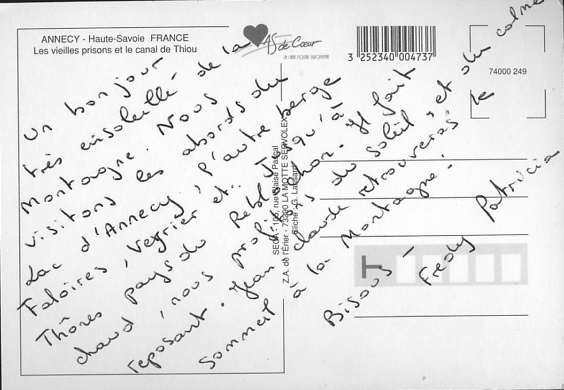 ANNECY - Haute-Savoie FRANCE
Les vieilles prisons et le canal de Thiou
AS de Cœur
3 252340 004737
74000 249
SEDA - 105, rue Blaise Pascal
Z.A. de l'Érier - 73290 LA MOTTE SERVOLEX
Un bonjour
très ensoleillé de la
Montagne. Nous
visitons les abords du
Lac d'Annecy, l'autre berge
Taloires, Veyrier et.. Jusqu'à
Thônes pays du Reblochon. Il fait
chaud, nous profitons du soleil et du calme
reposant. Jean claude retrouveras le
sommeil à la Montagne!
Bisous -
Fredy Patricia